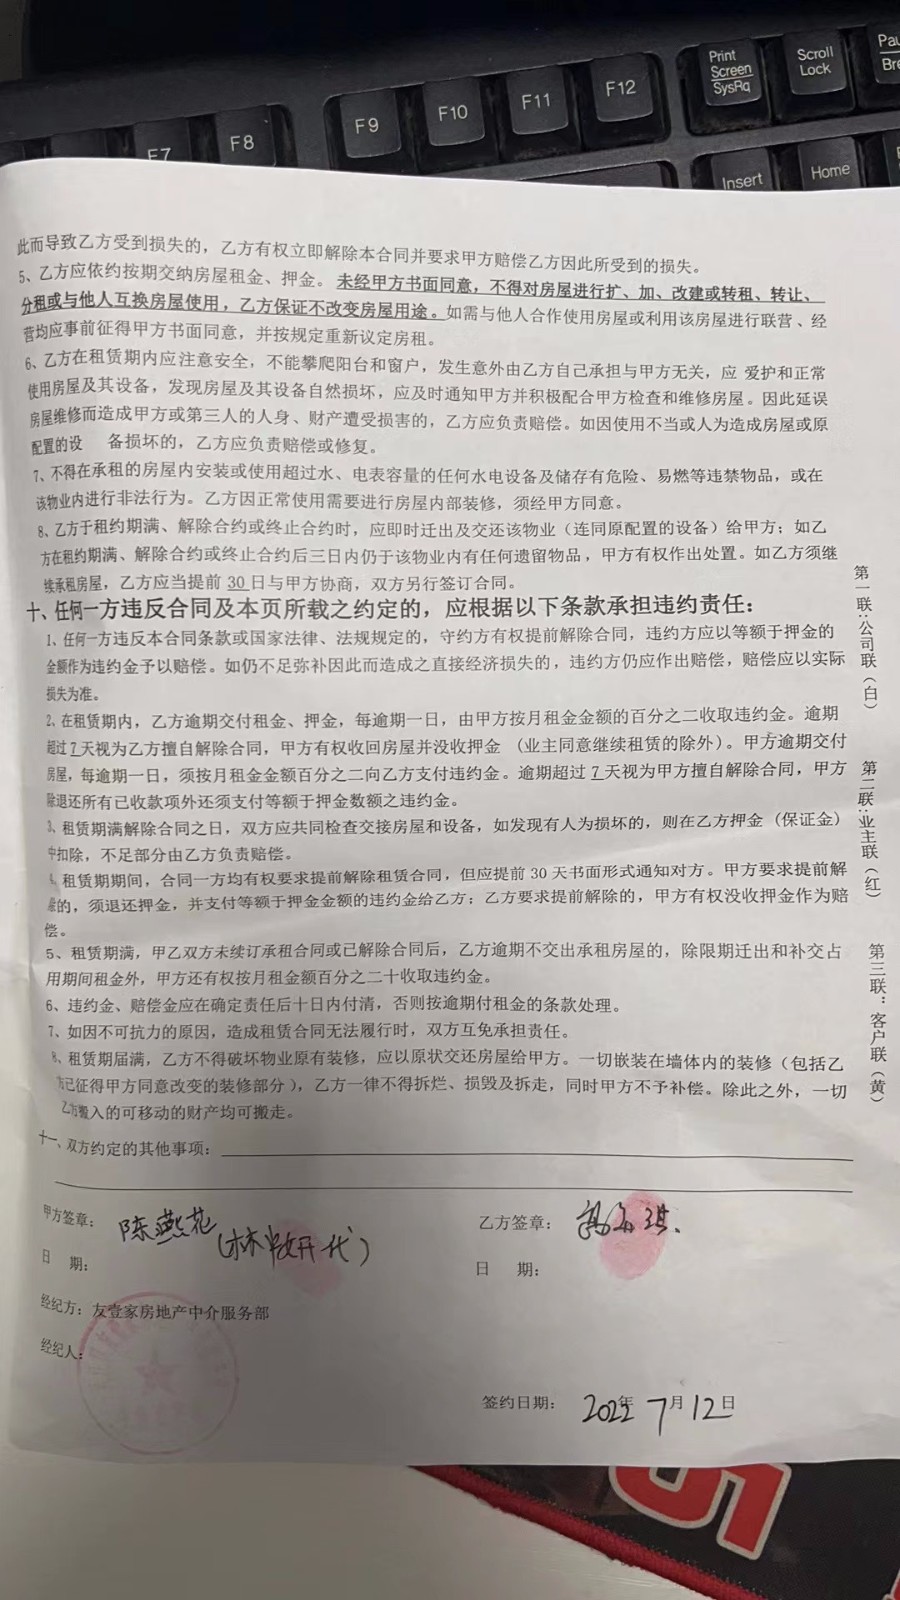 Print
Screen
SysRq
Scroll
Lock
F7
F8
F9
F10
F11
F12
Insert
Home
此而导致乙方受到损失的，乙方有权立即解除本合同并要求甲方赔偿乙方因此所受到的损失。
5、乙方应依约按期交纳房屋租金、押金。未经甲方书面同意，不得对房屋进行扩、加、改建或转租、转让、
分租或与他人互换房屋使用，乙方保证不改变房屋用途。如需与他人合作使用房屋或利用该房屋进行联营、经
营均应事前征得甲方书面同意，并按规定重新议定房租。
6、乙方在租赁期内应注意安全，不能攀爬阳台和窗户，发生意外由乙方自己承担与甲方无关，应 爱护和正常
使用房屋及其设备，发现房屋及其设备自然损坏，应及时通知甲方并积极配合甲方检查和维修房屋。因此延误
房屋维修而造成甲方或第三人的人身、财产遭受损害的，乙方应负责赔偿。如因使用不当或人为造成房屋或原
配置的设 备损坏的，乙方应负责赔偿或修复。
7、不得在承租的房屋内安装或使用超过水、电表容量的任何水电设备及储存有危险、易燃等违禁物品，或在
该物业内进行非法行为。乙方因正常使用需要进行房屋内部装修，须经甲方同意。
8、乙方于租约期满、解除合约或终止合约时，应即时迁出及交还该物业（连同原配置的设备）给甲方；如乙
方在租约期满、解除合约或终止合约后三日内仍于该物业内有任何遗留物品，甲方有权作出处置。如乙方须继
续承租房屋，乙方应当提前 30 日与甲方协商，双方另行签订合同。
十、任何一方违反合同及本页所载之约定的，应根据以下条款承担违约责任：
1、任何一方违反本合同条款或国家法律、法规规定的，守约方有权提前解除合同，违约方应以等额于押金的
金额作为违约金予以赔偿。如仍不足弥补因此而造成之直接经济损失的，违约方仍应作出赔偿，赔偿应以实际
损失为准。
2、在租赁期内，乙方逾期交付租金、押金，每逾期一日，由甲方按月租金金额的百分之二收取违约金。逾期
超过 7 天视为乙方擅自解除合同，甲方有权收回房屋并没收押金 （业主同意继续租赁的除外）。甲方逾期交付
房屋，每逾期一日，须按月租金金额百分之二向乙方支付违约金。逾期超过 7 天视为甲方擅自解除合同，甲方
除退还所有已收款项外还须支付等额于押金数额之违约金。
3、租赁期满解除合同之日，双方应共同检查交接房屋和设备，如发现有人为损坏的，则在乙方押金（保证金）
中扣除，不足部分由乙方负责赔偿。
4、租赁期期间，合同一方均有权要求提前解除租赁合同，但应提前 30 天书面形式通知对方。甲方要求提前解
除的，须退还押金，并支付等额于押金金额的违约金给乙方；乙方要求提前解除的，甲方有权没收押金作为赔
偿。
5、租赁期满，甲乙双方未续订承租合同或已解除合同后，乙方逾期不交出承租房屋的，除限期迁出和补交占
用期间租金外，甲方还有权按月租金额百分之二十收取违约金。
6、违约金、赔偿金应在确定责任后十日内付清，否则按逾期付租金的条款处理。
7、如因不可抗力的原因，造成租赁合同无法履行时，双方互免承担责任。
8、租赁期届满，乙方不得破坏物业原有装修，应以原状交还房屋给甲方。一切嵌装在墙体内的装修（包括乙
方已征得甲方同意改变的装修部分），乙方一律不得拆烂、损毁及拆走，同时甲方不予补偿。除此之外，一切
乙方搬入的可移动的财产均可搬走。
十一、双方约定的其他事项：
甲方签章： 陈燕花
（林
代）
乙方签章：
日 期：
日 期：
经纪方：友壹家房地产中介服务部
经纪人：
签约日期： 2022年 7月12日
第一联：公司联（白）
第二联：业主联（红）
第三联：客户联（黄）